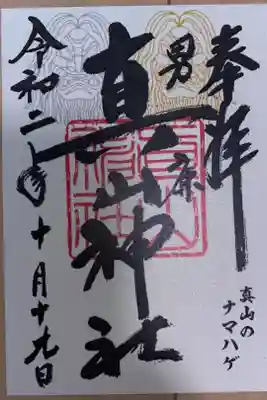 奉拝
男鹿
真山神社
令和二年十月十九日
真山の
ナマハゲ